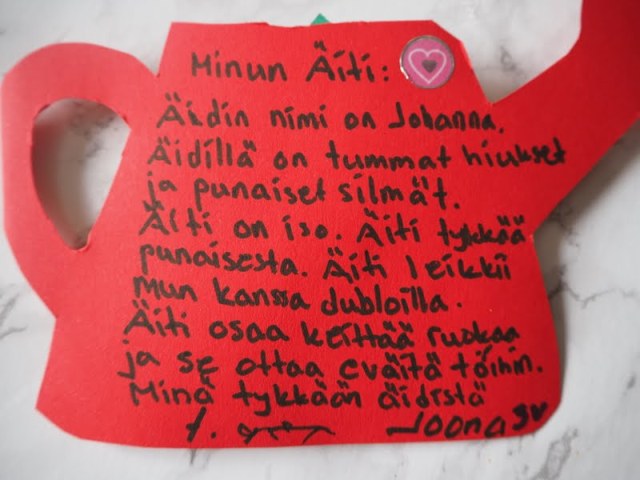 Minun Äiti:
Äidin nimi on Johanna.
Äidillä on tummat hiukset
ja punaiset silmät.
Äiti on iso. Äiti tykkää
punaisesta. Äiti leikkii
mun kanssa dubloilla.
Äiti osaa keittää ruokaa
ja se ottaa eväitä töihin.
Minä tykkään äidistä
T. Joonas